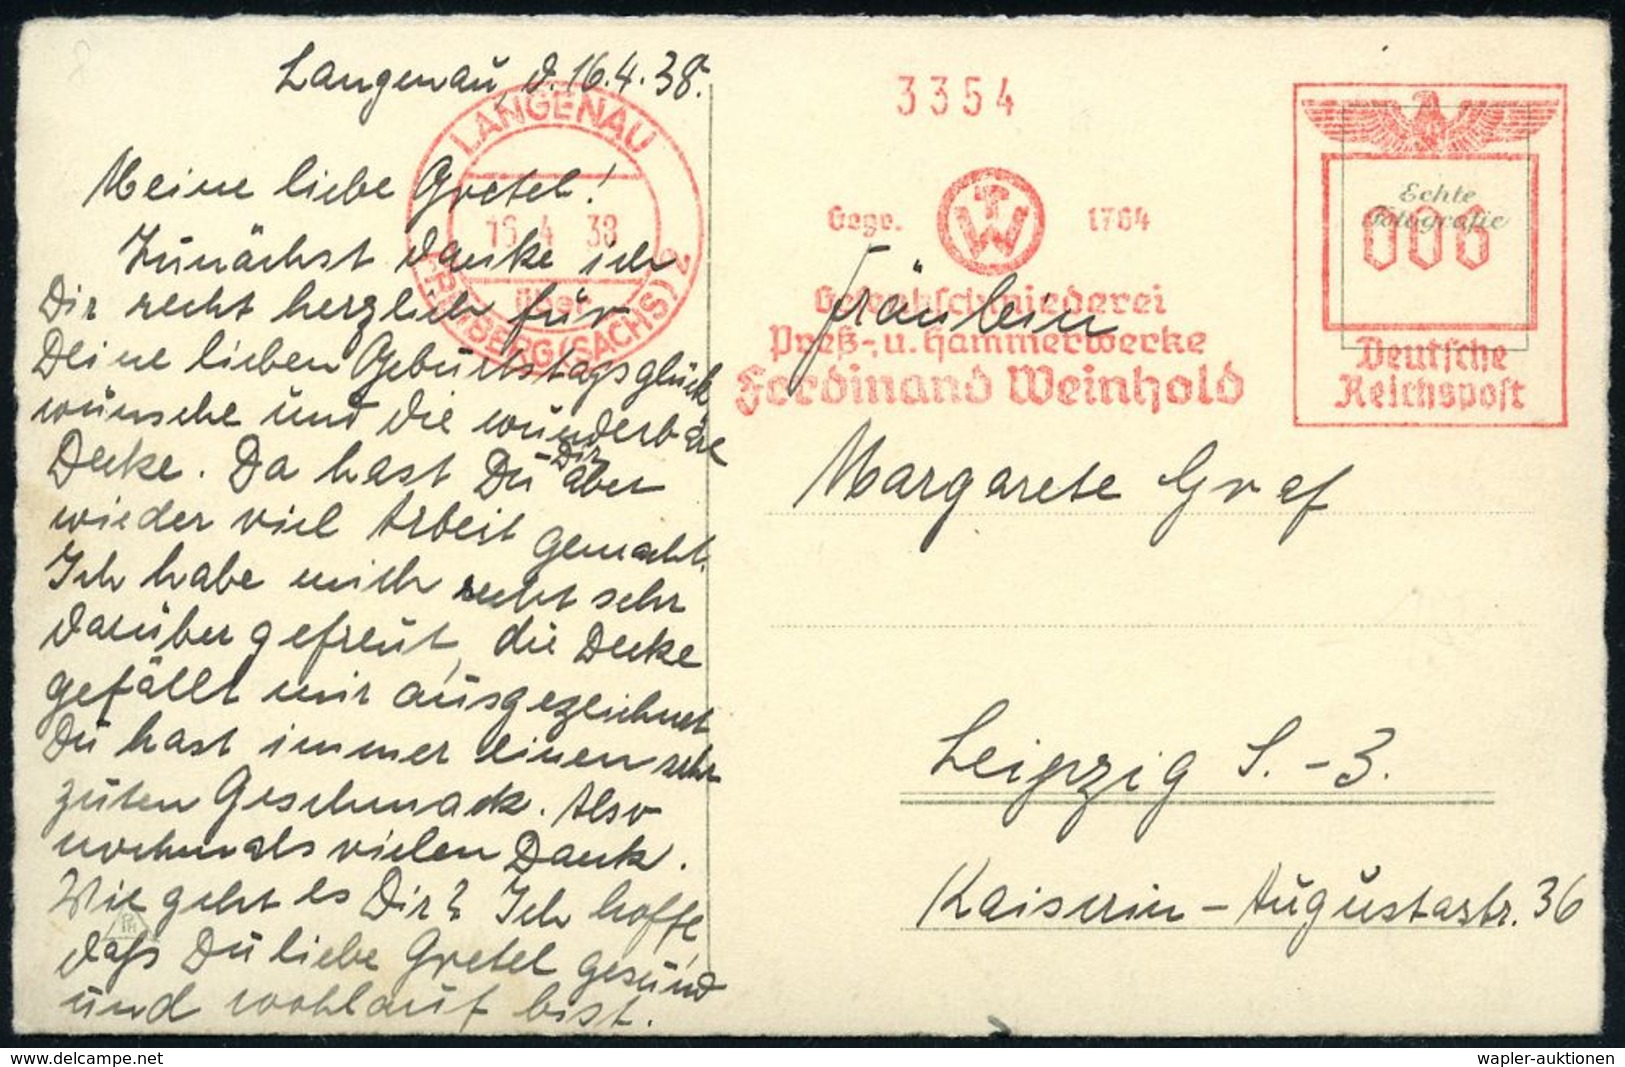 Langenau, d. 16.4.38.
Meine liebe Gretel!
Zunächst danke ich
Dir recht herzlich für
Deine lieben Geburtstagsglück
wünsche und die wunderbare
Decke. Da hast Du Dir aber
wieder viel Arbeit gemacht.
Ich habe mich recht sehr
darüber gefreut, die Decke
gefällt mir ausgezeichnet
Du hast immer einen sehr
guten Geschmack. Also
nochmals vielen Dank.
Wie geht es Dir? Ich hoffe,
daß Du liebe Gretel gesund
und wohlauf bist.
LANGENAU
16.4.38
über
FREIBERG (SACHS) 2
3354
Gegr. 1784
TW
Gesenkschmiederei
Preß- u. Hammerwerke
Ferdinand Weinhold
Echte
Fotografie
006
Deutsche
Reichspost
Fräulein
Margarete Graf
Leipzig S.-3.
Kaiserin-Augustastr. 36
www.delcampe.net
wapler-auktionen